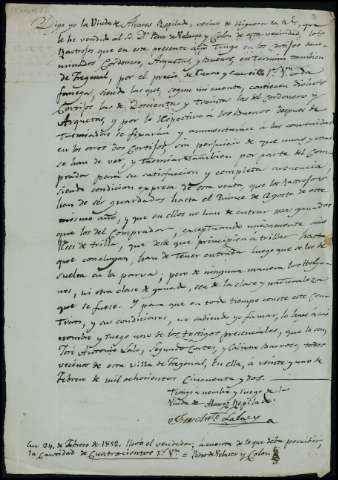 Digo yo la Viuda de Alvarez Repilado, vecina de Higuera la Rl., que
he vendido al Sr. Dn. Pero de Velasco y Colon de esta vecindad, los
Rastrojos que en este presente año tengo en los cortijos deno-
minados Cordoneros, Arquetas, y Buenos, en termino tambien
de Fregenal, por el precio de nueve y cuartillo rs. vn. cada
fanega, siendo las que, segun mi cuenta, contienen dichos
Cortijos las de Docientas y treinta las del Cordonero y
Arquetas, y por lo respectivo a los Buenos despues de
tasmiadas se fijarán y aumentarse á las convenidas
en los otros dos cortijos, sin perjuicio de que unas y otras
se han de ver, y tasmiar tambien por parte del Com-
prador para su satisfaccion y completa avenencia,
siendo condicion expresa de esta venta, que los Rastrojos
han de ser guardados hasta el quince de Agosto de este
mismo año, y que en ellos no han de entrar mas ganados
que los del Comprador, exceptuando unicamente las
reses de trilla, que desde que principien á trillar hasta
que concluyan, han de tener entrada luego que se les de
suelta de la parva, pero de ninguna manera los
ni otra clase de ganado, sea de la clase y naturaleza
que se fuese. Y para que en todo tiempo conste este Con-
trato, y sus condiciones, no sabiendo yo firmar, lo hace á mi
nombre y ruego uno de los testigos presenciales, que lo son
José Antonio Lalo, Segundo y Calisto Barroso, todos
vecinos de esta villa de Fregenal, En ella, á veinte y uno de
Febrero de mil ochocientos cincuenta y dos.
Testigo a nombre y ruego de la
Viuda de Alvarez Repilado
En 24 de Febrero de 1852. llevó el vendedor, á cuenta de lo que debe percibir,
la cantidad de Cuatrocientos rs. vn. = Pero de Velasco y Colon